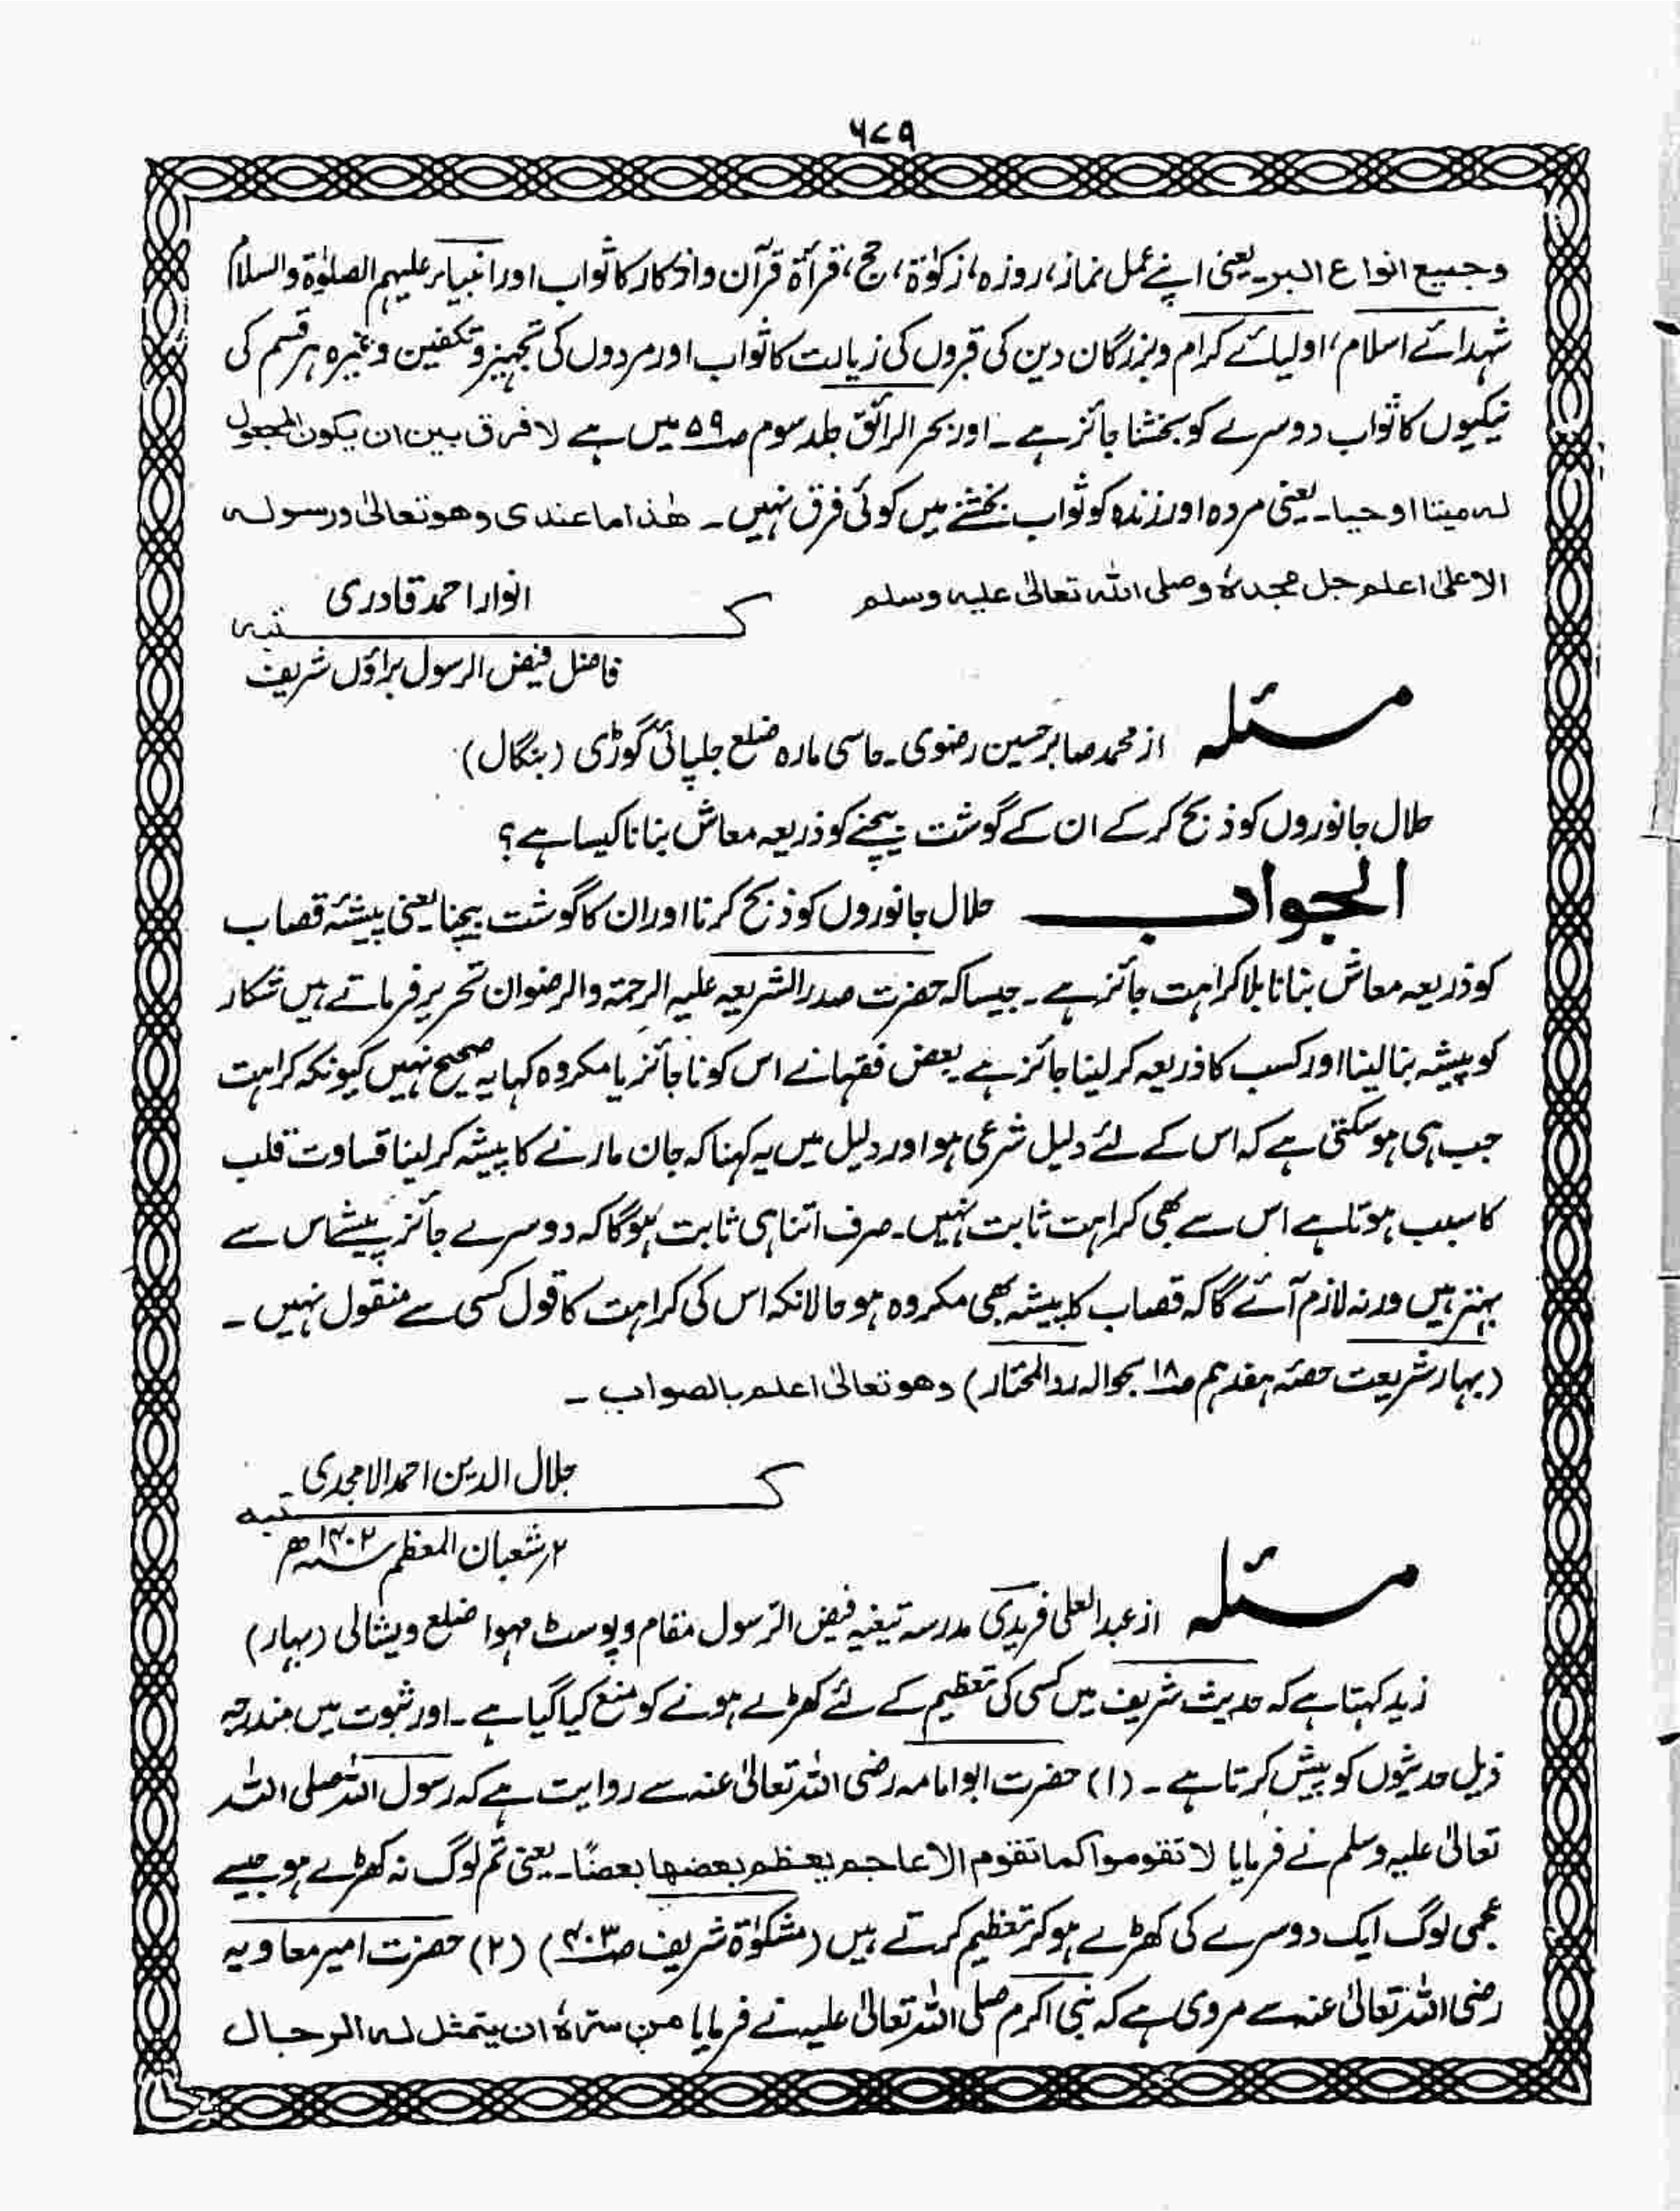 ۶۷۹
وجمیع انواع البر۔ یعنی اپنے عمل نماز، روزہ، زکوٰۃ، حج، قرأۃ قرآن واذکار کا ثواب اور انبیاء علیہم الصلوٰۃ والسلام
شہدائے اسلام، اولیائے کرام و بزرگان دین کی قبروں کی زیارت کا ثواب اور مردوں کی تجہیز و تکفین وغیرہ ہر قسم کی
نیکیوں کا ثواب دوسرے کو بخشنا جائز ہے۔ اور بحر الرائق جلد سوم ص۵۹ میں ہے لا فرق بین ان یکون المجعول
لہ میتا او حیا۔ یعنی مردہ اور زندہ کو ثواب بخشنے میں کوئی فرق نہیں۔ ھٰذا ما عندی وھو تعالیٰ ورسولہ
الاعلیٰ اعلم جل مجدہٗ وصلی اللہ تعالیٰ علیہ وسلم
کتبہ انوار احمد قادری
فاضل فیض الرسول براؤں شریف
مسئلہ از محمد صابر حسین رضوی۔ حاسی مارہ ضلع جلپائی گوڑی (بنگال)
حلال جانوروں کو ذبح کرکے ان کے گوشت بیچنے کو ذریعہ معاش بنانا کیسا ہے؟
الجواب حلال جانوروں کو ذبح کرنا اور ان کا گوشت بیچنا یعنی پیشۂ قصاب
کو ذریعہ معاش بنانا بلا کراہت جائز ہے۔ جیسا کہ حضرت صدر الشریعہ علیہ الرحمۃ والرضوان تحریر فرماتے ہیں شکار
کو پیشہ بنا لینا اور کسب کا ذریعہ کر لینا جائز ہے بعض فقہا نے اس کو نا جائز یا مکروہ کہا یہ صحیح نہیں کیونکہ کراہت
جب ہی ہو سکتی ہے کہ اس کے لئے دلیل شرعی ہو اور دلیل میں یہ کہنا کہ جان مارنے کا پیشہ کر لینا قساوت قلب
کا سبب ہوتا ہے اس سے بھی کراہت ثابت نہیں۔ صرف اتنا ہی ثابت ہوگا کہ دوسرے جائز پیشے اس سے
بہتر ہیں ورنہ لازم آئے گا کہ قصاب کا پیشہ بھی مکروہ ہو حالانکہ اس کی کراہت کا قول کسی سے منقول نہیں۔
(بہار شریعت حصہ ہفدہم ص۱۸ بحوالہ رد المحتار) وھو تعالیٰ اعلم بالصواب۔
کتبہ جلال الدین احمد الامجدی
۲؍ شعبان المعظم ۱۴۰۲ھ
مسئلہ از عبد العلی فریدی مدرسہ تیغیہ فیض الرسول مقام و پوسٹ مہوا ضلع ویشالی (بہار)
زید کہتا ہے کہ حدیث شریف میں کسی کی تعظیم کے لئے کھڑے ہونے کو منع کیا گیا ہے۔ اور ثبوت میں مندرجہ
ذیل حدیثوں کو پیش کرتا ہے۔ (۱) حضرت ابو امامہ رضی اللہ تعالیٰ عنہ سے روایت ہے کہ رسول اللہ صلی اللہ
تعالیٰ علیہ وسلم نے فرمایا لا تقوموا کما تقوم الاعاجم یعظم بعضھا بعضًا۔ یعنی تم لوگ نہ کھڑے ہو جیسے
عجمی لوگ ایک دوسرے کی کھڑے ہو کر تعظیم کرتے ہیں (مشکوٰۃ شریف ص۴۰۳) (۲) حضرت امیر معاویہ
رضی اللہ تعالیٰ عنہ سے مروی ہے کہ نبی اکرم صلی اللہ تعالیٰ علیہ نے فرمایا من سرہٗ ان یتمثل لہ الرجال